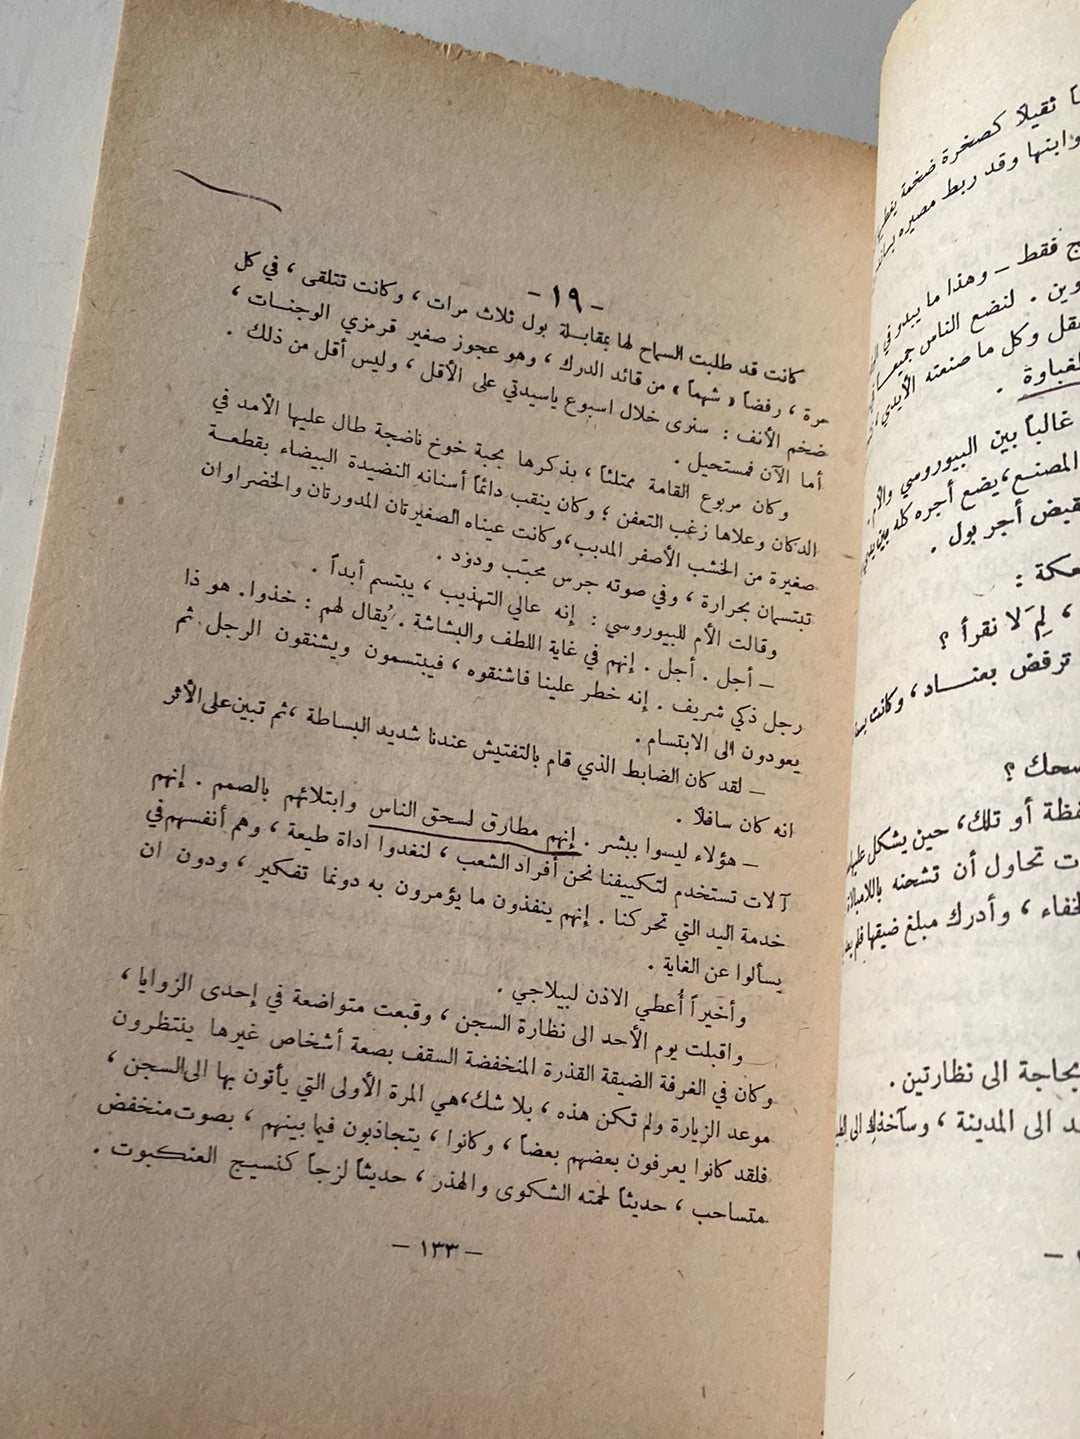 - ١٩ -
كانت قد طلبت السماح لها بمقابلة بول ثلاث مرات ، وكانت تتلقى ، في كل
مرة ، رفضاً « شهماً » من قائد الدرك ، وهو عجوز صغير قرمزي الوجنات ،
ضخم الأنف : سنرى خلال اسبوع ياسيدتي على الأقل ، وليس أقل من ذلك .
أما الآن فمستحيل .
وكان مربوع القامة ممتلئاً ، يذكرها بحبة خوخ ناضجة طال عليها الأمد في
الدكان وعلاها زغب التعفن ؛ وكان ينقب دائماً أسنانه النضيدة البيضاء بقطعة
صغيرة من الخشب الأصفر المدبب، وكانت عيناه الصغيرتان المدورتان والخضراوان
تبتسمان بحرارة ، وفي صوته جرس محبّب ودود .
وقالت الأم للبيوروسي : إنه عالي التهذيب ، يبتسم أبداً .
– أجل . أجل . إنهم في غاية اللطف والبشاشة . يُقال لهم : خذوا. هو ذا
رجل ذكي شريف . إنه خطر علينا فاشنقوه ، فيبتسمون ويشنقون الرجل. ثم
يعودون الى الابتسام .
– لقد كان الضابط الذي قام بالتفتيش عندنا شديد البساطة ، ثم تبين على الأثر
انه كان سافلاً .
– هؤلاء ليسوا ببشر . إنهم مطارق لسحق الناس وابتلائهم بالصمم . إنهم
آلات تستخدم لتكييفنا نحن أفراد الشعب ، لنغدوا اداة طيعة ، وهم أنفسهم في
خدمة اليد التي تحركنا . إنهم ينفذون ما يؤمرون به دونما تفكير ، ودون ان
يسألوا عن الغاية .
وأخيراً أُعطي الاذن لبيلاجي .
واقبلت يوم الأحد الى نظارة السجن ، وقبعت متواضعة في إحدى الزوايا ،
وكان في الغرفة الضيقة القذرة المنخفضة السقف بصعة أشخاص غيرها ينتظرون
موعد الزيارة ولم تكن هذه ، بلا شك، هي المرة الأولى التي يأتون بها الى السجن ،
فلقد كانوا يعرفون بعضهم بعضاً ، وكانوا ، يتجاذبون فيما بينهم ، بصوت منخفض
متساحب ، حديثاً لحمته الشكوى والهذر ، حديثاً لزجاً كنسيج العنكبوت .
– ١٣٣ –
ثقيلاً كصخرة ضخمة
وابنها وقد ربط مصيره
فقط – وهذا ما يبدو في
. لنضع الناس جميعاً
وكل ما صنعته الأيدي
.
غالباً بين البيوروسي والأم.
المصنع، يضع أجره كله بين
أجر بول .
:
، لِمَ لا نقرأ ؟
ترفض بعناد ، وكانت
؟
أو تلك، حين يشكل
تحاول أن تشحنه باللامبالاة
، وأدرك مبلغ ضيقها فلم
بحاجة الى نظارتين .
الى المدينة ، وسآخذك الى
–